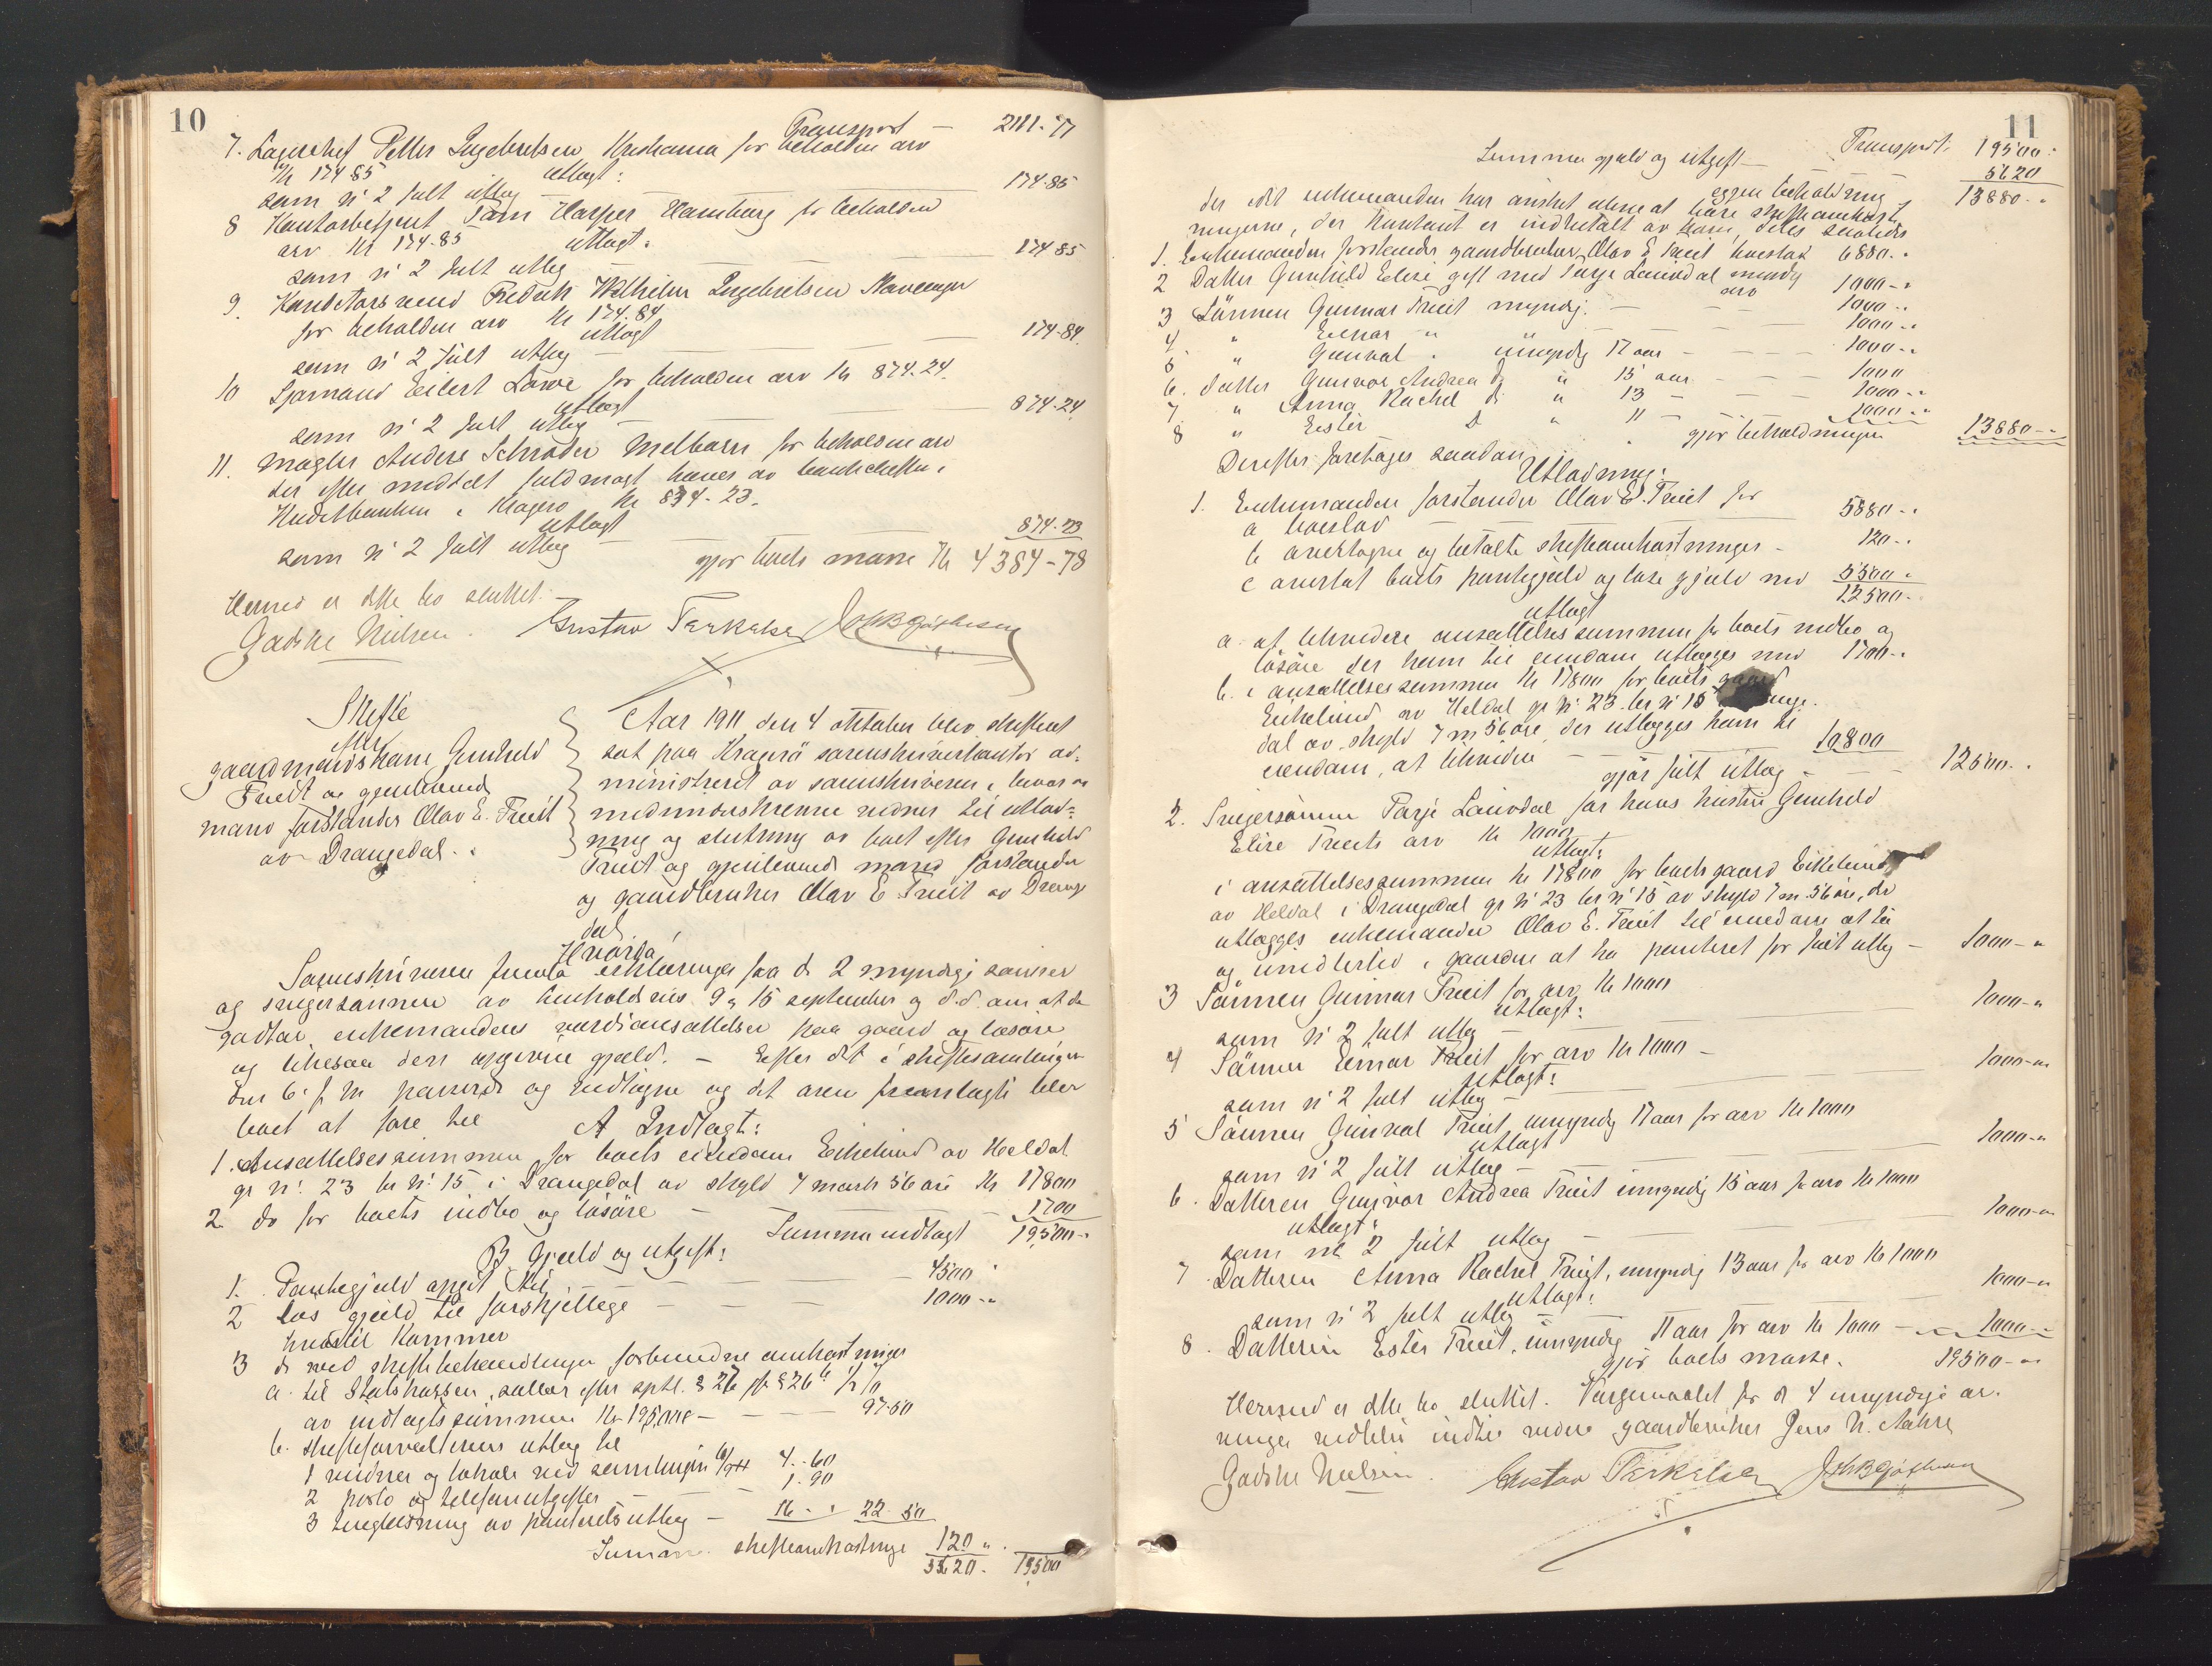 10
Transport — 2111-77
7. Lagerchef Petter Ingebretsen Kristiania for beholden arv
Kr 174 85 utlagt:
som № 2 fult utlæg — 174-85
8 Kontorbetjent Tom Harper Hamburg for beholden
arv Kr 174-85 utlagt:
som № 2 fult utlæg — 174 85
9. Fredrik Wilhelm Ingebretsen Stavanger
for beholden arv Kr 174.84
utlagt
som № 2 fult utlæg — 174-84
10 Sjømand Eilert Lowe for beholden arv Kr 874.24.
utlagt
som № 2 fult utlæg — 874-24
11. Mægler Anders Schrøder Melborn for beholden arv
der efter meddelt fuldmagt hæves av bankchefen i
Kreditbanken i Kragerø Kr 874-23.
utlagt
som № 2 fult utlæg — 874-23
gjør boets masse Kr 4384-78
Hermed er dette bo sluttet.
Gadske Nielsen. Gustav Terkelsen
Skifte
efter
gaardmandskone Gunhild
Treit og gjenlevende
mand forstander Olav E. Treit
av Drangedal.
Aar 1911 den 4 oktober blev skifteret
sat paa Kragerø sorenskriverkontor ad-
ministreret av sorenskriveren i nærvær av
medunderskrevne vidner til utlod-
ning og slutning av boet efter Gunhild
Treit og gjenlevende mand forstander
og gaardbruker Olav E Treit av Drange
dal
Hvorda!
Sorenskriveren fremla erklæringer fra de 2 myndige sønner
og svigersønnen av henholdsvis 9 og 15 september og d.d. om at de
godtar enkemandens værdiansættelser paa gaard og løsøre
og likesaa den opgivne gjæld. — Efter det i skiftesamlingen
den 6 f. m. passerede og vedtagne og det oven fremlagte blev
boet at føre til A Indtægt:
1. Ansættelsessummen for boets eiendom Eikelund av Heldal
gr № 23 br № 15 i Drangedal av skyld 7 mark 56 øre Kr 17800
2 do for boets indbo og løsøre — 1700
Summa indtægt 19500-"
B Gjæld og utgift:
1. Pantegjæld opgit til — 4500 "
2 Løs gjæld til forskjellige — 1000-"
3 de ved skiftebehandlingen forbundne omkostninger
a. til Statskassen
av indtægtssummen Kr 19500 — 97-50
b. skifteforvalterens utlæg til
1 vidner og lokale ved samlingen 6/9 11 4.-60
2 porto og telefonutgifter — 1.90
3 tinglæsning av panterets utlæg — 16-" 22 50
Summa skifteomkostninger 120 "
5620. 19500
11
Transport: 19500-
Summa gjæld og utgift — 5620
egen beholdning 13880-"
der idet enkemanden har ønsket alene at bære skifteomkost
ningerne, der kontant er indbetalt av ham, deles saaledes
1. Enkemanden forstander gaardbruker Olav E Treit boeslod 6880-"
2 Datter Gunhild Elise gift med Tarje Lauvdal myndig
arv 1000-"
3 Sønnen Gunnar Treit myndig. — 1000-"
4 " Einar " — 1000-"
5 " Gunval " umyndig 17 aar — 1000-"
6. Datter Gunvor Andrea do " 15 aar — 1000
7. " Anna Rachel do " 13 — 1000-"
8 " Ester do " 11 — 1000-"
gjør beholdningen 13880-"
Derefter foretages saadan
Utlodning:
1. Enkemanden forstander Olav E. Treit for
a boeslod — 5880-"
b overtagne og betalte skifteomkostninger — 120-"
c overtat boets pantegjæld og løse gjæld med 5500-"
12500-
utlagt
a. at likvidere ansættelsessummen for boets indbo og
løsøre der ham til eiendom utlægges med 1700-"
b. i ansættelsessummen Kr 17800 for boets gaard
Eikelund av Heldal gr № 23 br № 15
dal av skyld 7 m 56 øre, der utlægges ham til
eiendom, at likvidere — 10800
gjør fult utlæg — 12500-"
2. Svigersønnen Tarje Lauvdal for hans hustru Gunhild
Elise Treits arv Kr 1000
utlagt:
i ansættelsessummen Kr 17800 for boets gaard Eikelund
av Heldal i Drangedal gr № 23 br № 15 av skyld 7 m. 56 øre, der
utlægges enkemanden Olav E. Treit til eiendom at ta
og imidlertid i gaarden at ha panteret for fuit utlæg — 1000-"
3 Sønnen Gunnar Treit for arv Kr 1000
utlagt:
som № 2 fult utlæg — 1000-"
4 Sønnen Einar Treit for arv Kr 1000 —
utlagt:
som № 2 fult utlæg — 1000-"
5 Sønnen Gunval Treit, umyndig 17 aar for arv Kr 1000
utlagt
som № 2 fult utlæg — 1000-"
6. Datteren Gunvor Andrea Treit umyndig 15 aar for arv Kr 1000
utlagt:
som № 2 fult utlæg — 1000-"
7 Datteren Anna Rachel Treit, umyndig 13 aar for arv Kr 1000
utlagt:
som № 2 fult utlæg — 1000-"
8. Datteren Ester Treit, umyndig 11 aar for arv Kr 1000 — 1000-"
gjør boets masse. 19500-"
Hermed er dette bo sluttet. Værgemaalet for de 4 umyndige ar-
vinger gaardbruker Jens N.
Gadske Nielsen. Gustav Terkelsen